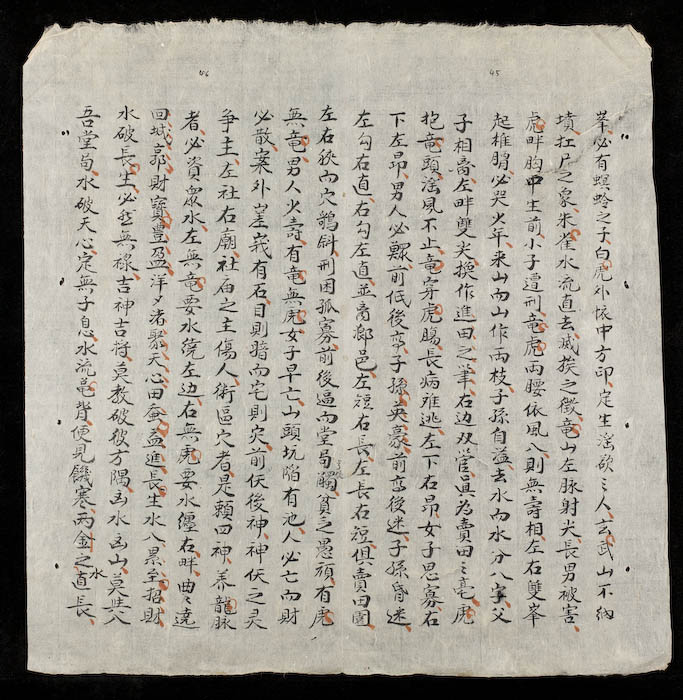 45
莘必有螟蛉之子白虎外懷中方印定生淫欲〻人玄武山不納
墳扛尸之象朱雀水流直去㓕族之徵竜山左脉射尖長男被害
虎畔胸中生前小子遭刑竜虎兩腰依風八則無壽相左右雙峯
起椎胸必哭少年来山向山作兩枝子孫自溢去水向水分八字父
子相离左畔雙尖換作進田之筆右边双管眞為賣田〻毫虎
抱竜頭淫風不止竜穿虎腸長病难逃左下右昂女子思寡右
下左昂男人必鰥前低後高子孫英豪前高後迷子孫昏迷
左勾右直右勾左直並离鄉邑左短右長左長右短俱賣田園
46
左右狹向穴鵝斜刑困孤寡前後逼向堂局觸貧乏愚頑有虎
無竜男人少壽有竜無虎女子早亡山頭坑陷有池人必亡而財
必散案外崖峩有石目則暗向宅則灾前伏後神神伏之灵
争主左社右廟社庙之主傷人術區穴者是賴四神养龍脉
者必資衆水左無竜要水繞左边右無虎要水纏右畔曲〻遶
回城郭財寳豊盈洋〻渚聚天心田蚕益進長生水八累至招財
水破長生必然無祿吉神吉將莫教破彼方隅凶水凶山莫共八
吾堂局水破天心定無子息水流竜背便見饑寒丙金之水直長